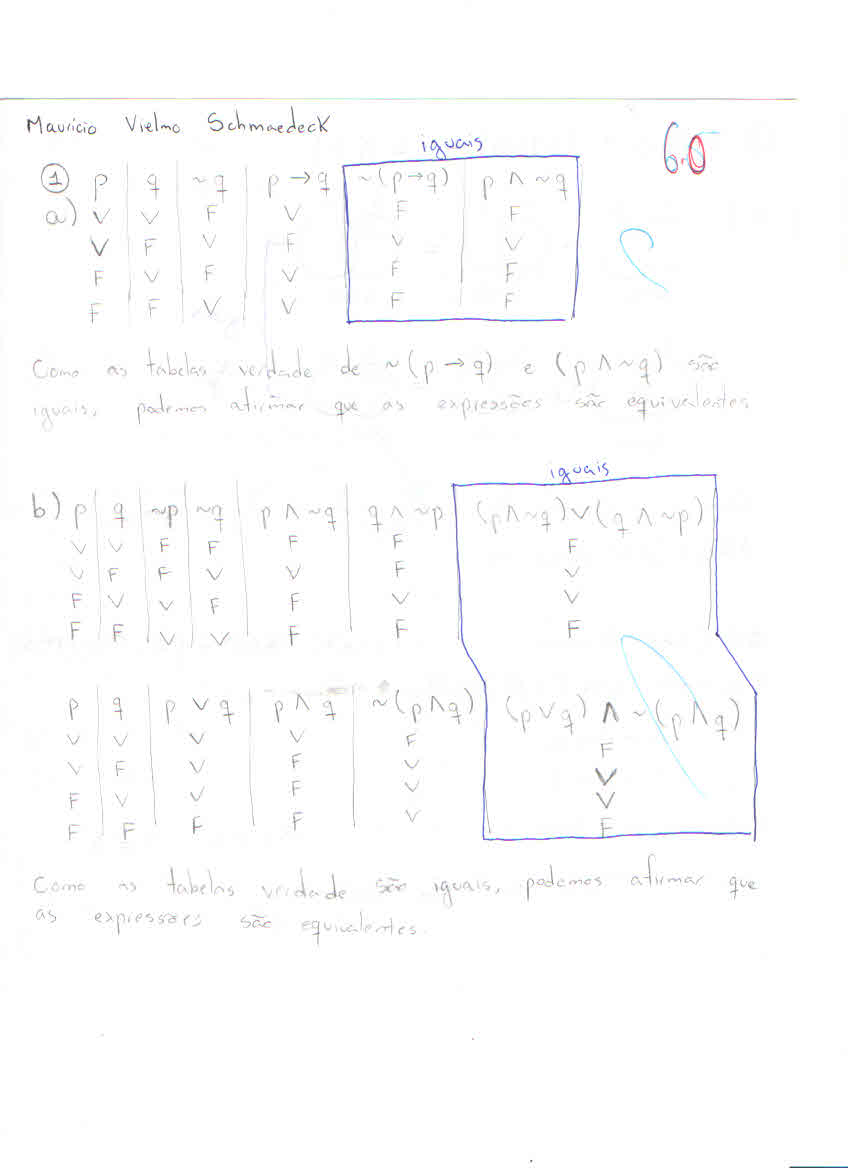 Mauricio Vielmo Schmaedeck
6.0
iguais
① p q ~q p → q ~(p → q) p ∧ ~q
a) V V F V F F
V F V F V V
F V F V F F
F F V V F F
Como as tabelas verdade de ~(p → q) e (p ∧ ~q) são
iguais, podemos afirmar que as expressões são equivalentes.
iguais
b) p q ~p ~q p ∧ ~q q ∧ ~p (p ∧ ~q) ∨ (q ∧ ~p)
V V F F F F F
V F F V V F V
F V V F F V V
F F V V F F F
p q p ∨ q p ∧ q ~(p ∧ q) (p ∨ q) ∧ ~(p ∧ q)
V V V V F F
V F V F V V
F V V F V V
F F F F V F
Como as tabelas verdade são iguais, podemos afirmar que
as expressões são equivalentes.